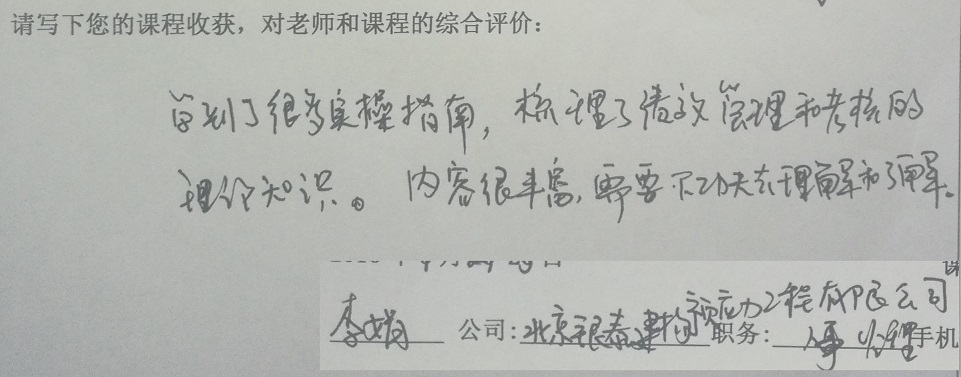 请写下您的课程收获，对老师和课程的综合评价：
学到了很多实操指南，梳理了绩效管理和考核的
理论知识。内容很丰富，需要下功夫去理解和了解。
课
李娟 公司：北京银泰建构预应力工程有限公司 职务： 经理 手机